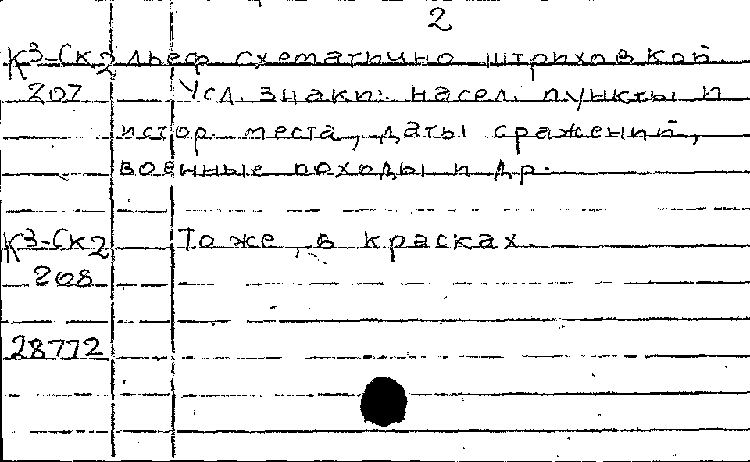 2
К3-Ск2 льеф схематично штриховкой.
207 Усл. знаки: насел. пункты и
истор. места, даты сражений,
военные походы и др.
К3-Ск2 То же, в красках.
208
28772